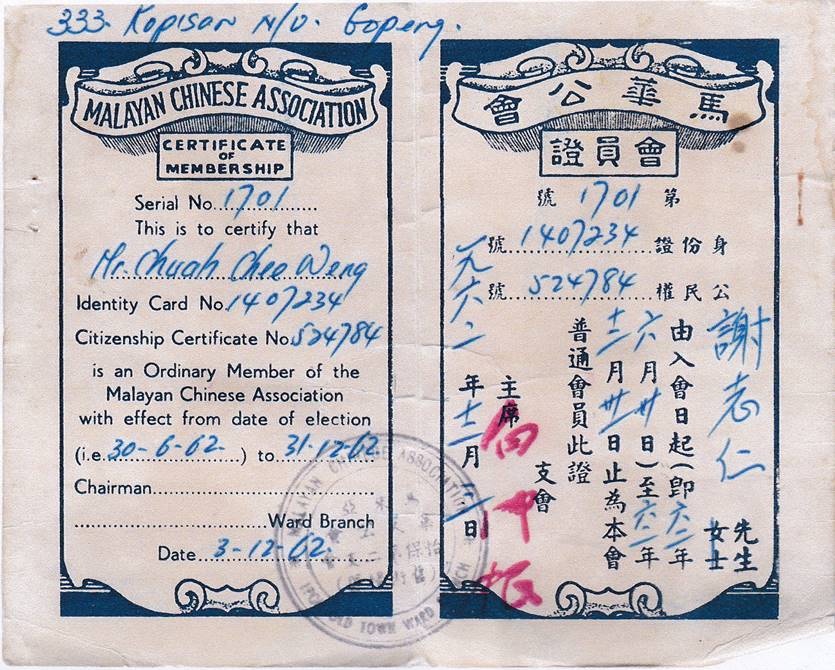 333. Kopisan N/V. Gopeng.
MALAYAN CHINESE ASSOCIATION
CERTIFICATE
OF
MEMBERSHIP
Serial No. 1701
This is to certify that
Mr. Chuah Chee Weng
Identity Card No. 1407234
Citizenship Certificate No. 524784
is an Ordinary Member of the
Malayan Chinese Association
with effect from date of election
(i.e. 30-6-62 ) to 31-12-62
Chairman
Ward Branch
Date 3-12-62.
馬華公會
會員證
第 1701 號
身份證 1407234 號
公民權 524784 號
謝志仁 先生 女士
由入會日起(即六二年
六月卅日)至六二年
十二月卅一日止為本會
普通會員此證
支會
主席
一九六二年十二月三日
MALAYAN CHINESE ASSOCIATION
IPOH OLD TOWN WARD BRANCH